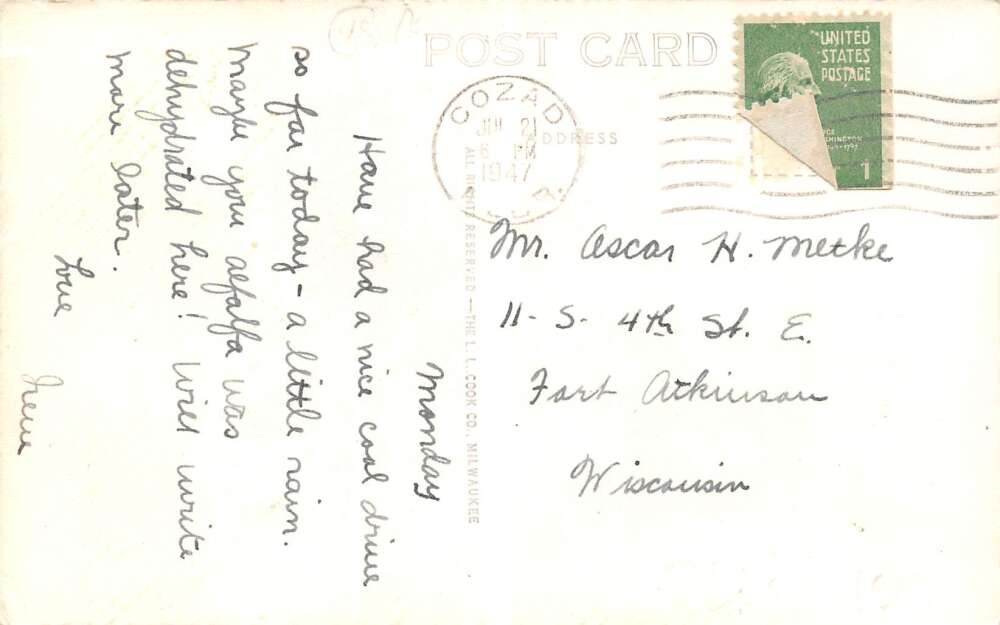 POST CARD
ADDRESS
COZAD
JUL 21
PM
1947
UNITED
STATES
POSTAGE
1
ALL RIGHTS RESERVED — THE L. L. COOK CO., MILWAUKEE
Monday
Have had a nice cool drive
so far today - a little rain.
Maybe your alfalfa was
dehydrated here! Will write
more later.
Love
Irene
Mr. Oscar H. Metke
11- S- 4th St. E.
Fort Atkinson
Wisconsin